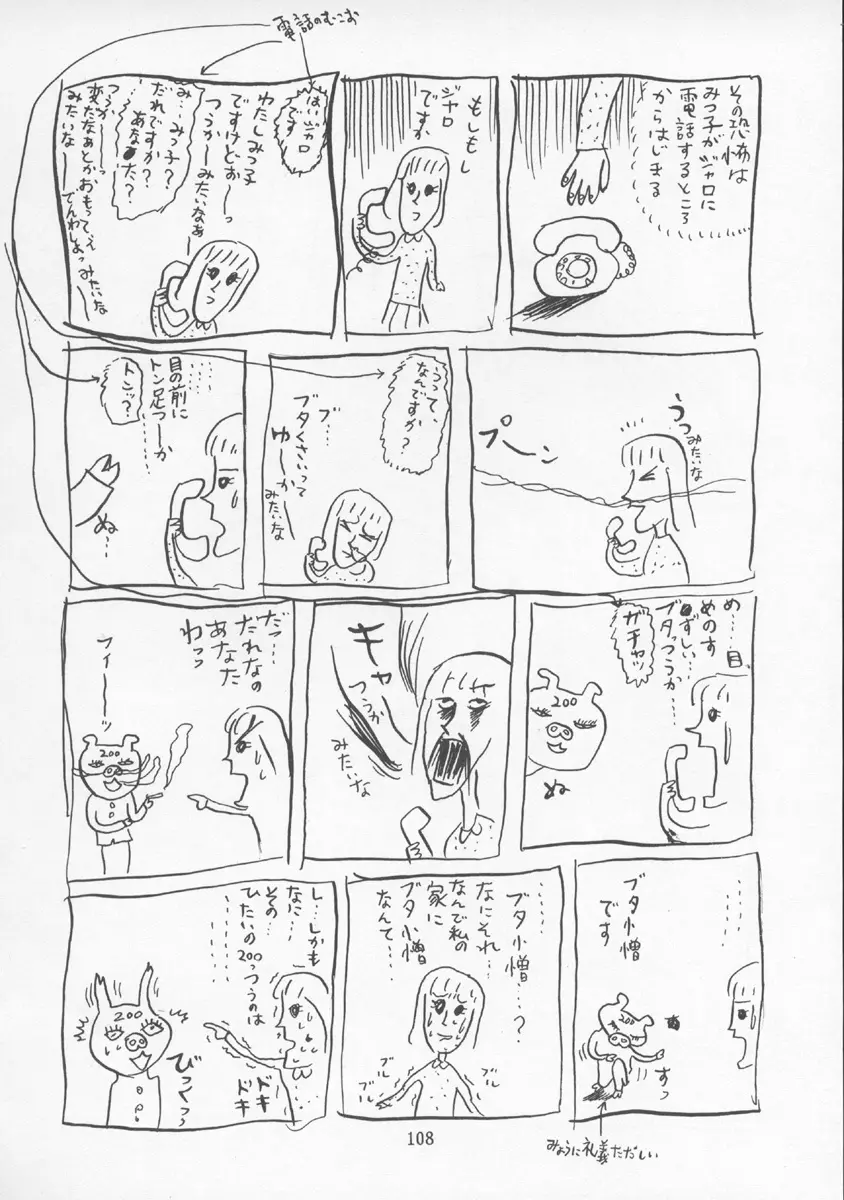 電話のむこお
その恐怖は
みつ子がジャロに
電話するところ
からはじまる
もしもし
ジャロ
ですか
はいジャロ
です
わたしみつ子
ですけどォ〜っ
つうか―みたいなぁ―
み…みつ子?
だれですか?
…あなた?
つうか―っ
変だなぁとかおもってぇ
みたいな―
でんわしよっみたいな
うっ
みたいな
プ〜ン
うって、
なんですか?
ブ…
ブタくさいって
ゆ〜か
みたいな
………
目の前に
トン足つ〜か
………
トンッ?
ぬ…
め…目、
めのす
ずしい…
ブタっつうか…
ガチャッ
200
ぬ
キャ
つうか
みたいな
だっ…
だれなの
あなた
わっっ
フィ――ッ
200
………
ブタ小憎
です
200
すっ
みょうに礼義ただしい
………
ブタ小憎…?
なにそれ…
なんで私の
家に
ブタ小憎
なんて……
ブル
ブル
ブル
ブル
し…しかも
なに…
その…
ひたいの200っつうのは
………
ドキ
ドキ
200
びくっっ
108